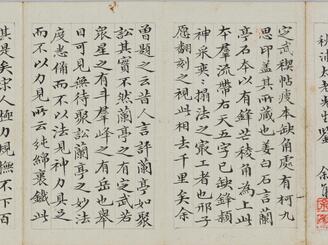 定武稧帖瘦本缺角處有柯九
思印蓋其所藏也姜白石言蘭
亭石本以有鋒芒稜角為上此
本羣流帶右天五字已缺鋒穎
神采奕〻搨法之最工者也邢子
愿翻刻之視此相去千里矣余
曾題之云昔人言評蘭亭如聚
訟其實不然蘭亭之有定武若
衆星之有斗羣峰之有岳也舉
目可見無待聚訟蘭亭之妙法
度悉備而不以法見神力具足
而不以力見所云純綿裹鐵此
其是矣宋人極力規橅不下百